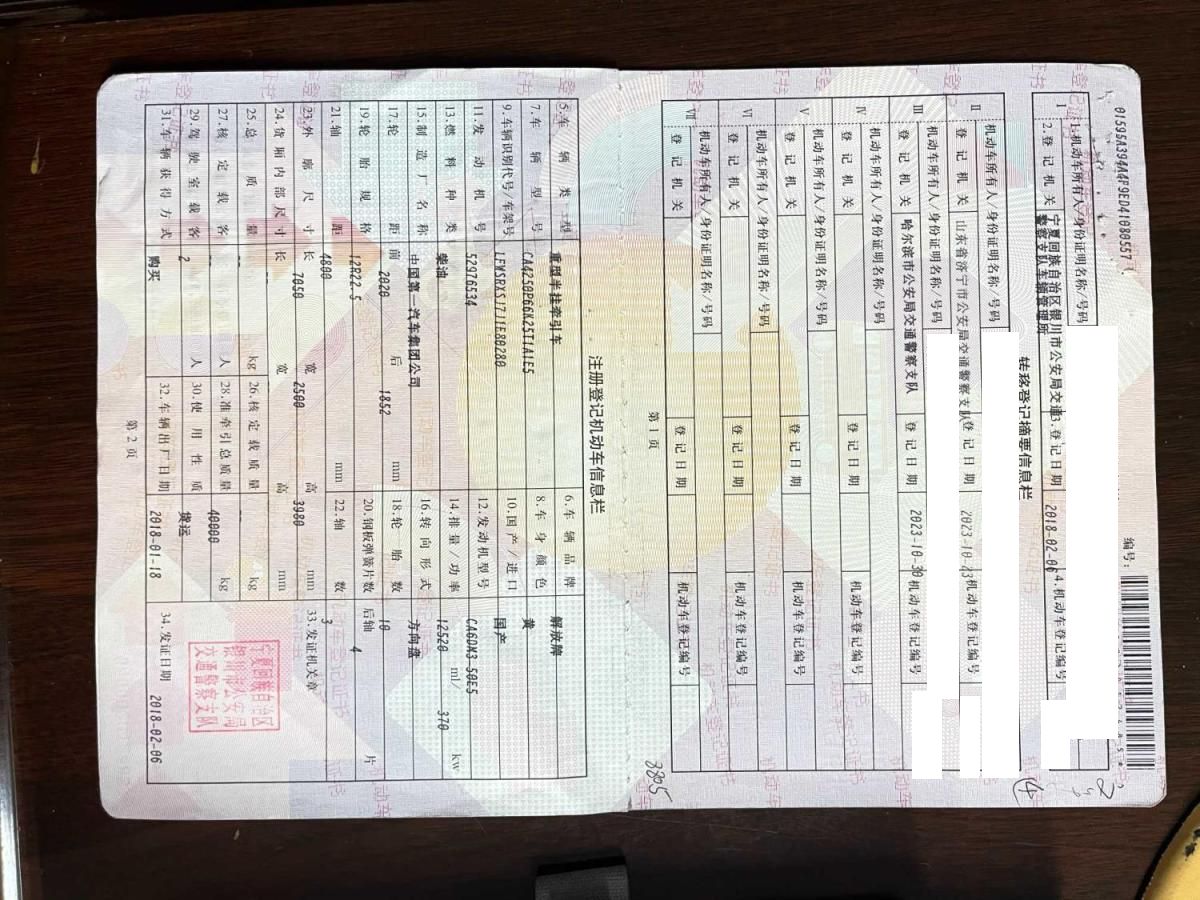 编号:
01595A394A4F9ED41080557
1.机动车所有人/身份证明名称/号码
I 2.登记机关 宁夏回族自治区银川市公安局交通警察支队车辆管理所 3.登记日期 2018-02-06 4.机动车登记编号
转移登记摘要信息栏
II 机动车所有人/身份证明名称/号码
登记机关 山东省济宁市公安局交通警察支队 登记日期 2023-10-23 机动车登记编号
III 机动车所有人/身份证明名称/号码
登记机关 哈尔滨市公安局交通警察支队 登记日期 2023-10-30 机动车登记编号
IV 机动车所有人/身份证明名称/号码
登记机关 登记日期 机动车登记编号
V 机动车所有人/身份证明名称/号码
登记机关 登记日期 机动车登记编号
VI 机动车所有人/身份证明名称/号码
登记机关 登记日期 机动车登记编号
VII 机动车所有人/身份证明名称/号码
登记机关 登记日期 机动车登记编号
第1页
3805
注册登记机动车信息栏
5.车辆类型 重型半挂牵引车 6.车辆品牌 解放牌
7.车辆型号 CA4250P66K25T1A1E5 8.车身颜色 黄
9.车辆识别代号/车架号 LFWSRXSJ7J1E80280 10.国产/进口 国产
11.发动机号 52976534 12.发动机型号 CA6DM3-50E5
13.燃料种类 柴油 14.排量/功率 12520 ml/ 370 kw
15.制造厂名称 中国第一汽车集团公司 16.转向形式 方向盘
17.轮距 前 2020 后 1852 mm 18.轮胎数 10
19.轮胎规格 12R22.5 20.钢板弹簧片数 后轴 4 片
21.轴距 4800 mm 22.轴数 3
23.外廓尺寸 长 7050 宽 2500 高 3980 mm 33.发证机关章
24.货厢内部尺寸 长 宽 高 mm
25.总质量 -- kg 26.核定载质量 kg
27.核定载客 -- 人 28.准牵引总质量 40000 kg
29.驾驶室载客 2 人 30.使用性质 货运
31.车辆获得方式 购买 32.车辆出厂日期 2018-01-18 34.发证日期 2018-02-06
宁夏回族自治区
银川市公安局
交通警察支队
第2页